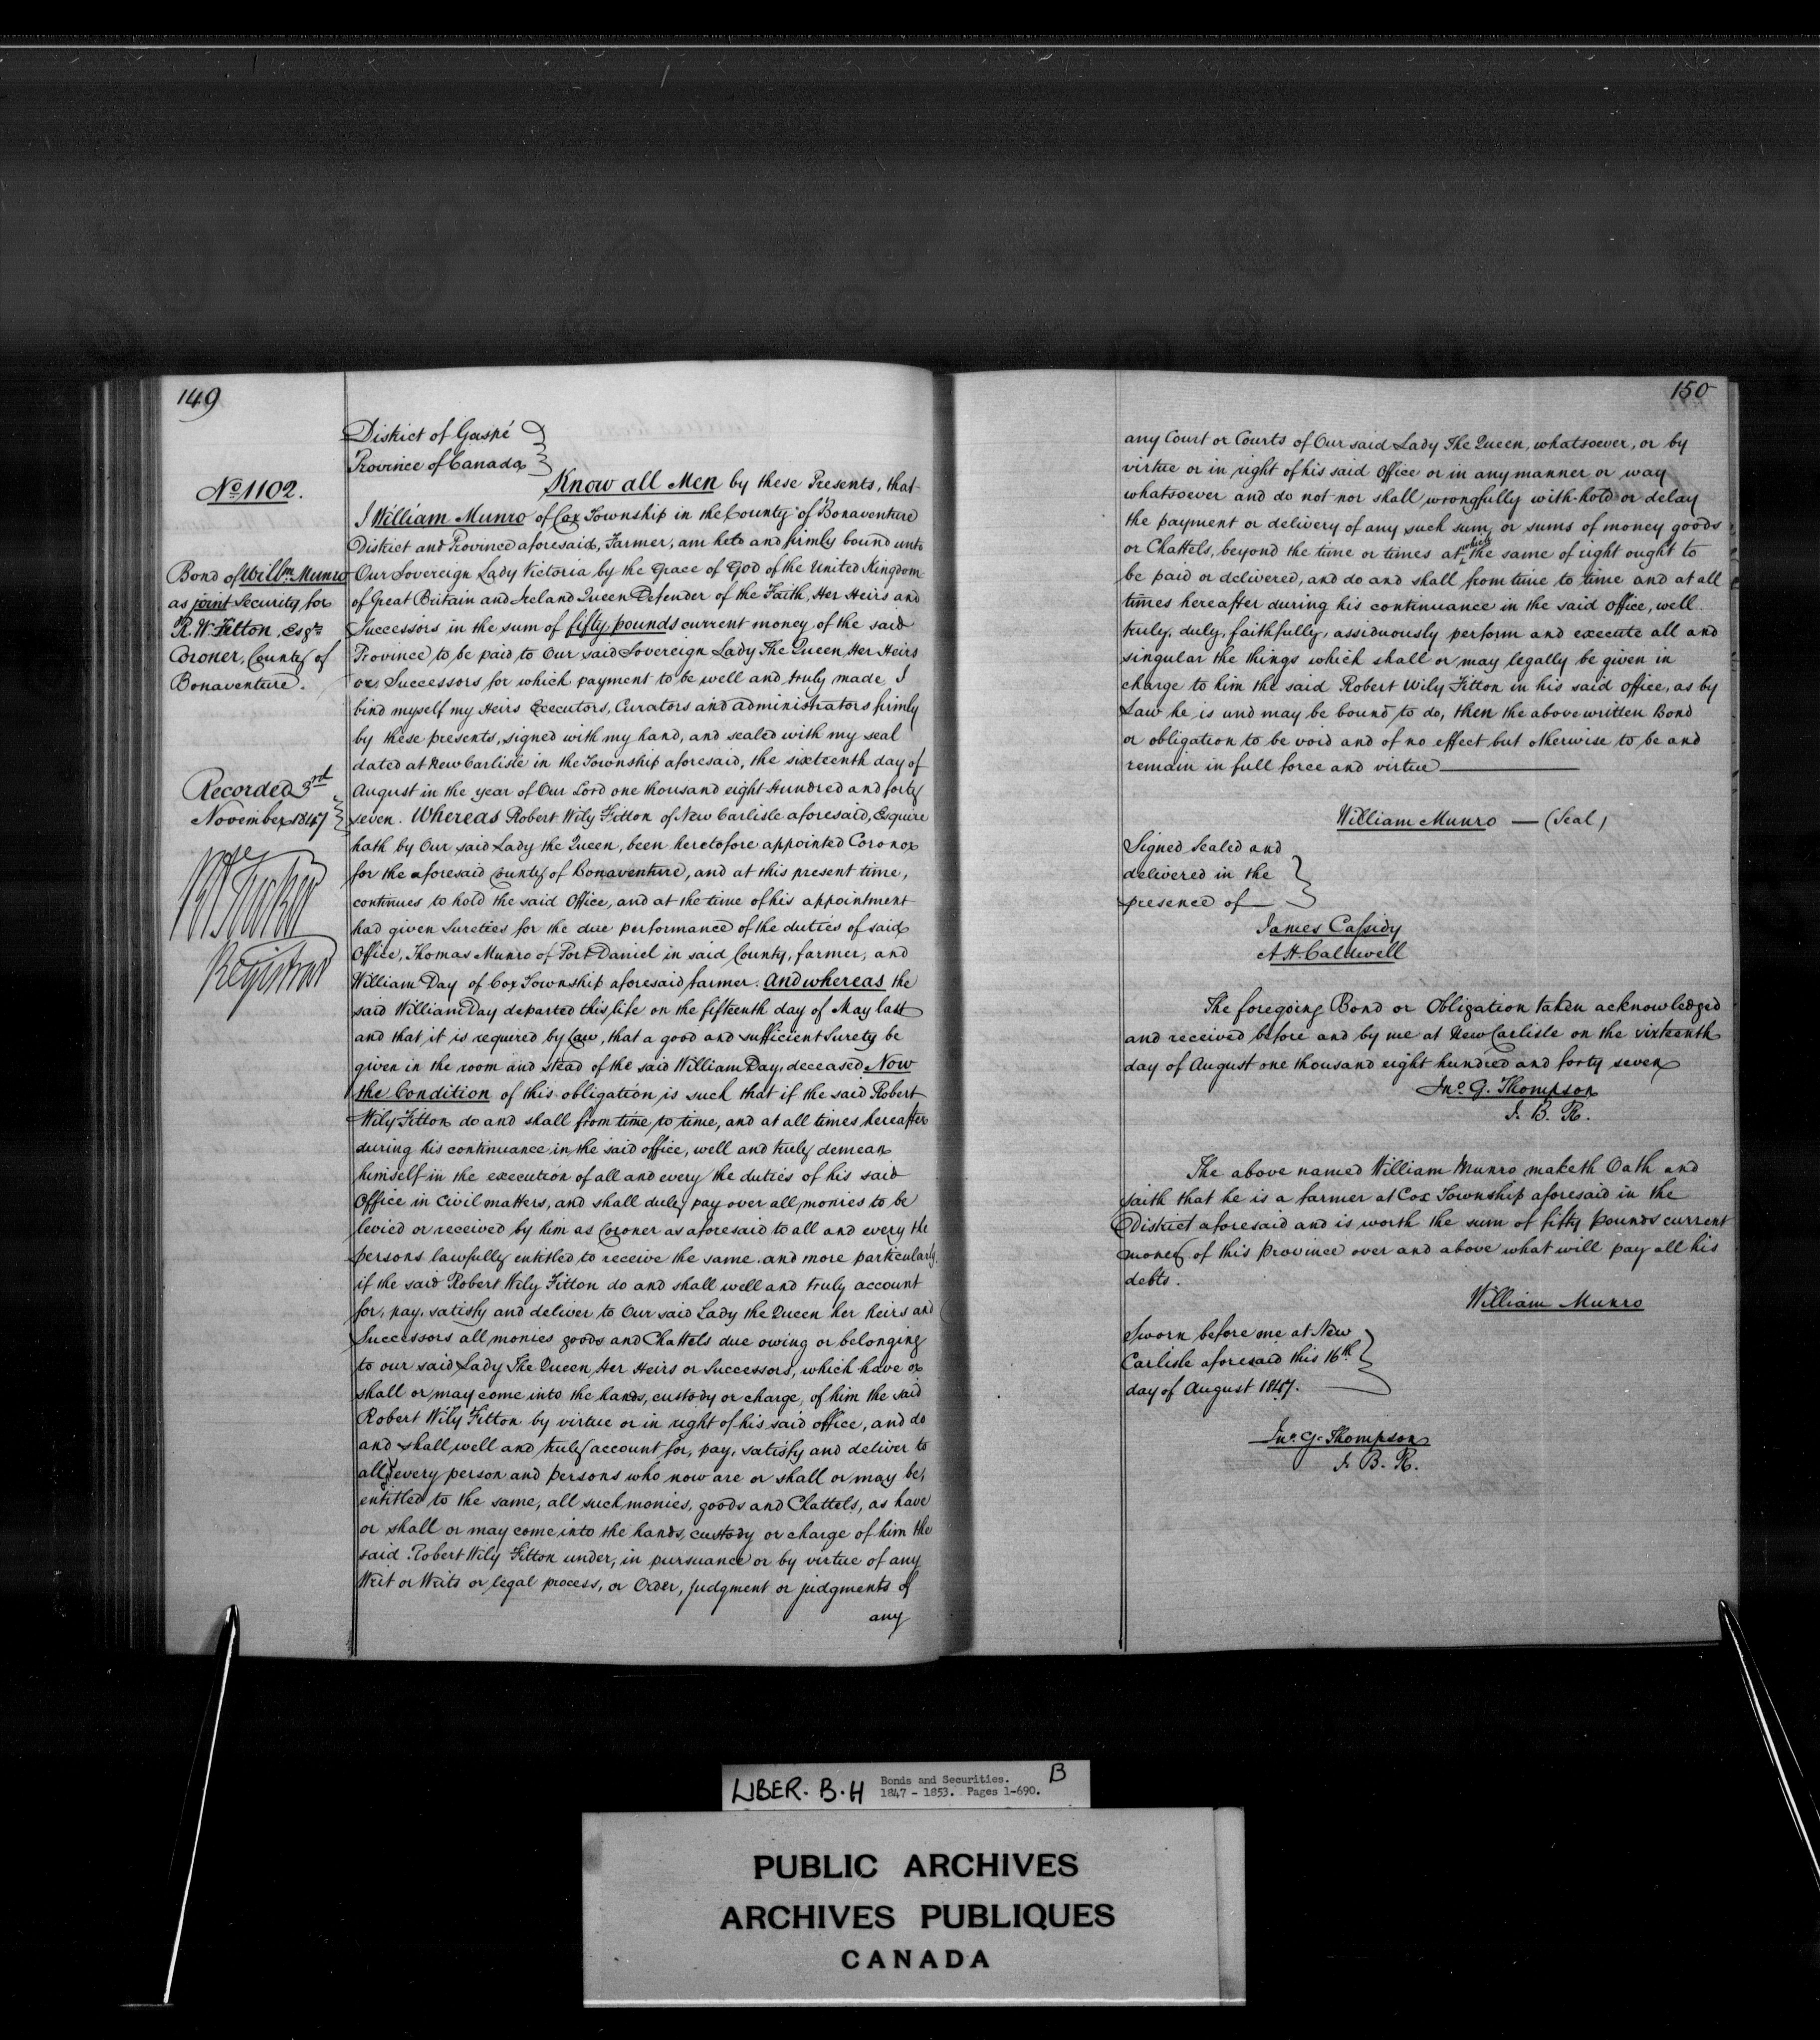 149
No. 1102.
Bond of Willm. Munro
as joint Security for
R. W. Fitton, Esqre
Coroner, County of
Bonaventure.
Recorded 3rd
November 1847
Registrar
District of Gaspé
Province of Canada
Know all Men by these Presents, that
I William Munro of Cox Township in the County of Bonaventure
District and Province aforesaid, Farmer, am held and firmly bound unto
Our Sovereign Lady Victoria by the Grace of God of the United Kingdom
of Great Britain and Ireland Queen Defender of the Faith, Her Heirs and
Successors in the sum of fifty pounds current money of the said
Province to be paid to Our said Sovereign Lady The Queen, Her Heirs
or Successors for which payment to be well and truly made, I
bind myself my Heirs Executors, Curators and administrators firmly
by these presents, signed with my hand, and sealed with my seal
dated at New Carlisle in the Township aforesaid, the sixteenth day of
August in the year of Our Lord one thousand eight Hundred and forty
seven. Whereas Robert Wily Fitton of New Carlisle aforesaid, Esquire
hath by Our said Lady the Queen, been heretofore appointed Coroner
for the aforesaid County of Bonaventure, and at this present time,
continues to hold the said Office, and at the time of his appointment
had given Sureties for the due performance of the duties of said
Office, Thomas Munro of Port Daniel in said County, farmer, and
William Day of Cox Township aforesaid farmer. And whereas the
said William Day departed this life on the fifteenth day of May last
and that it is required by Law, that a good and sufficient Surety be
given in the room and stead of the said William Day, deceased Now
the Condition of this obligation is such that if the said Robert
Wily Fitton do and shall from time to time, and at all times hereafter
during his continuance in the said office, well and truly demean
himself in the execution of all and every the duties of his said
Office in Civil matters, and shall duly pay over all monies to be
levied or received by him as Coroner as aforesaid to all and every the
persons lawfully entitled to receive the same. and more particularly
if the said Robert Wily Fitton do and shall well and truly account
for, pay, satisfy and deliver to Our said Lady the Queen her heirs and
Successors all monies goods and Chattels due owing or belonging
to our said Lady The Queen, Her Heirs or Successors, which have or
shall or may come into the hands, custody or charge, of him the said
Robert Wily Fitton by virtue or in right of his said office, and do
and shall well and truly account for, pay, satisfy and deliver to
all & every person and persons who now are or shall or may be,
entitled to the same, all such monies, goods and Chattels, as have
or shall or may come into the hands, custody or charge of him the
said Robert Wily Fitton under, in pursuance or by virtue of any
Writ or Writs or legal process, or Order, judgment or judgments of
any
150
any Court or Courts of Our said Lady The Queen, whatsoever, or by
virtue or in right of his said Office or in any manner or way
whatsoever and do not nor shall wrongfully with-hold or delay
the payment or delivery of any such sum or sums of money goods
or Chattels, beyond the time or times at which the same of right ought to
be paid or delivered, and do and shall from time to time and at all
times hereafter during his continuance in the said office, well
truly, duly, faithfully, assiduously perform and execute all and
singular the things which shall or may legally be given in
charge to him the said Robert Wily Fitton in his said office, as by
Law he is and may be bound to do, then the above written Bond
or obligation to be void and of no effect but otherwise to be and
remain in full force and virtue
William Munro — (Seal)
Signed Sealed and
delivered in the
presence of
James Cassidy
A H. Caldwell
The foregoing Bond or Obligation taken acknowledged
and received before and by me at New Carlisle on the sixteenth
day of August one thousand eight hundred and forty seven
Jno. G. Thompson
J. B. R.
The above named William Munro maketh Oath and
saith that he is a farmer at Cox Township aforesaid in the
District aforesaid and is worth the sum of fifty pounds current
money of this Province over and above what will pay all his
debts.
William Munro
Sworn before me at New
Carlisle aforesaid this 16th
day of August 1847.
Jno. G. Thompson
J. B. R.
LIBER. B.H Bonds and Securities. B
1847 - 1853. Pages 1-690.
PUBLIC ARCHIVES
ARCHIVES PUBLIQUES
CANADA